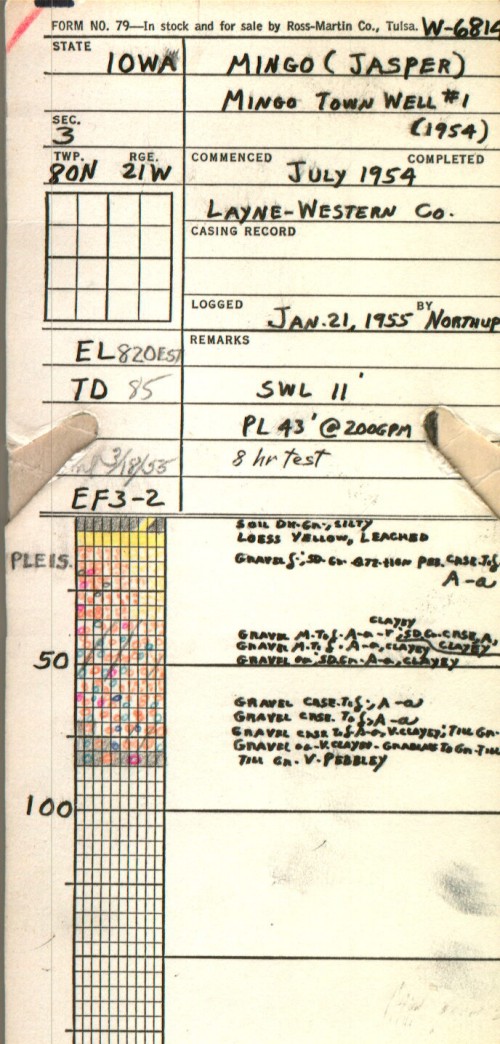 FORM NO. 79—In stock and for sale by Ross-Martin Co., Tulsa. W-6814
STATE
IOWA MINGO (JASPER)
MINGO TOWN WELL #1
SEC.
3 (1954)
TWP. RGE. COMMENCED COMPLETED
80N 21W JULY 1954
LAYNE-WESTERN CO.
CASING RECORD
LOGGED BY
JAN. 21, 1955 NORTHUP
EL 820 EST REMARKS
TD 85 SWL 11'
PL 43' @ 200GPM
3/18/55 8 hr test
EF3-2
SOIL DK-GN-, SILTY
LOESS YELLOW, LEACHED
PLEIS. GRAVEL f-; SD. CSE. TO f
A-a
CLAYEY
GRAVEL M. TO f. A-a-r; SD. CRSE, A,
GRAVEL M. TO f. A-a, CLAYEY CLAYEY
50 GRAVEL aa; SD. GN. A-a, CLAYEY
GRAVEL CRSE. TO f-, A-a
GRAVEL CRSE. TO f, A-a
GRAVEL CRSE TO f A-a, V. CLAYEY; TILL GN-
GRAVEL aa-V. CLAYEY- GRADING TO GN-TILL
TILL GN. V. PEBBLEY
100